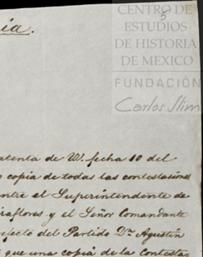 CENTRO DE
5
ESTUDIOS
DE HISTORIA
DE MÉXICO
FUNDACIÓN
Carlos Slim
ia.
atenta de W. fecha 10 del
copia de todas las contestaciones
entre el Superintendente de
aflores y el Señor Comandante
efecto del Partido Dn Agustin
que una copia de la contesta